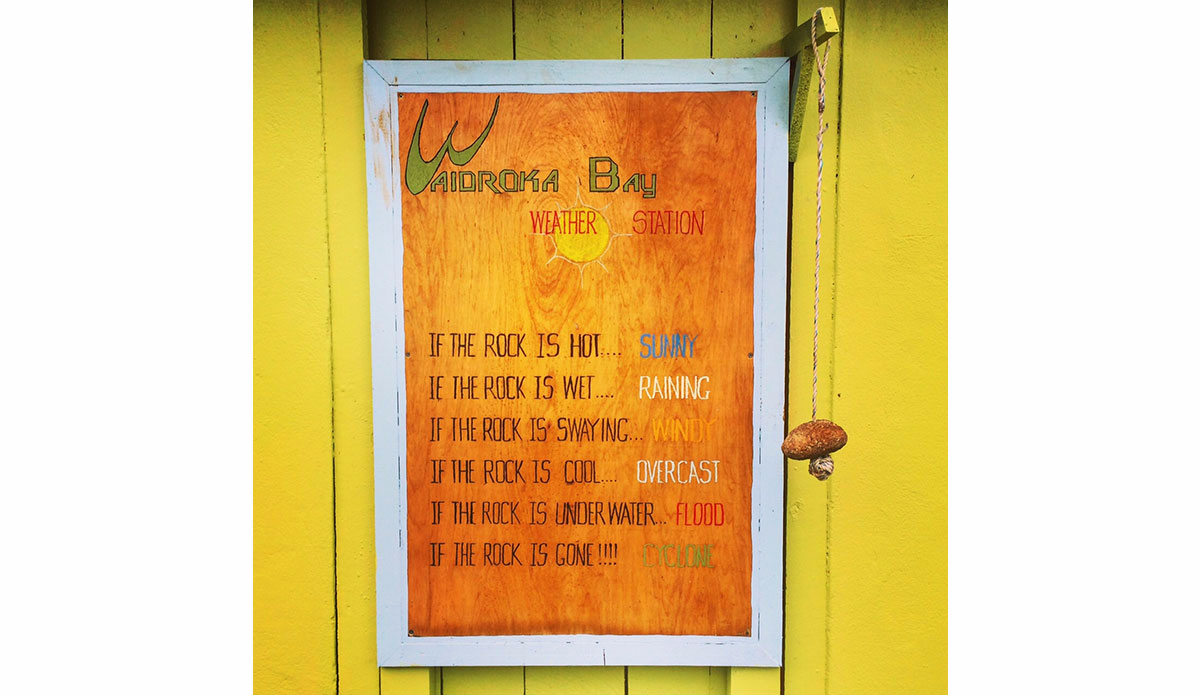 WAIDROKA BAY
WEATHER STATION
IF THE ROCK IS HOT.... SUNNY
IF THE ROCK IS WET.... RAINING
IF THE ROCK IS SWAYING... WINDY
IF THE ROCK IS COOL.... OVERCAST
IF THE ROCK IS UNDERWATER... FLOOD
IF THE ROCK IS GONE!!!! CYCLONE